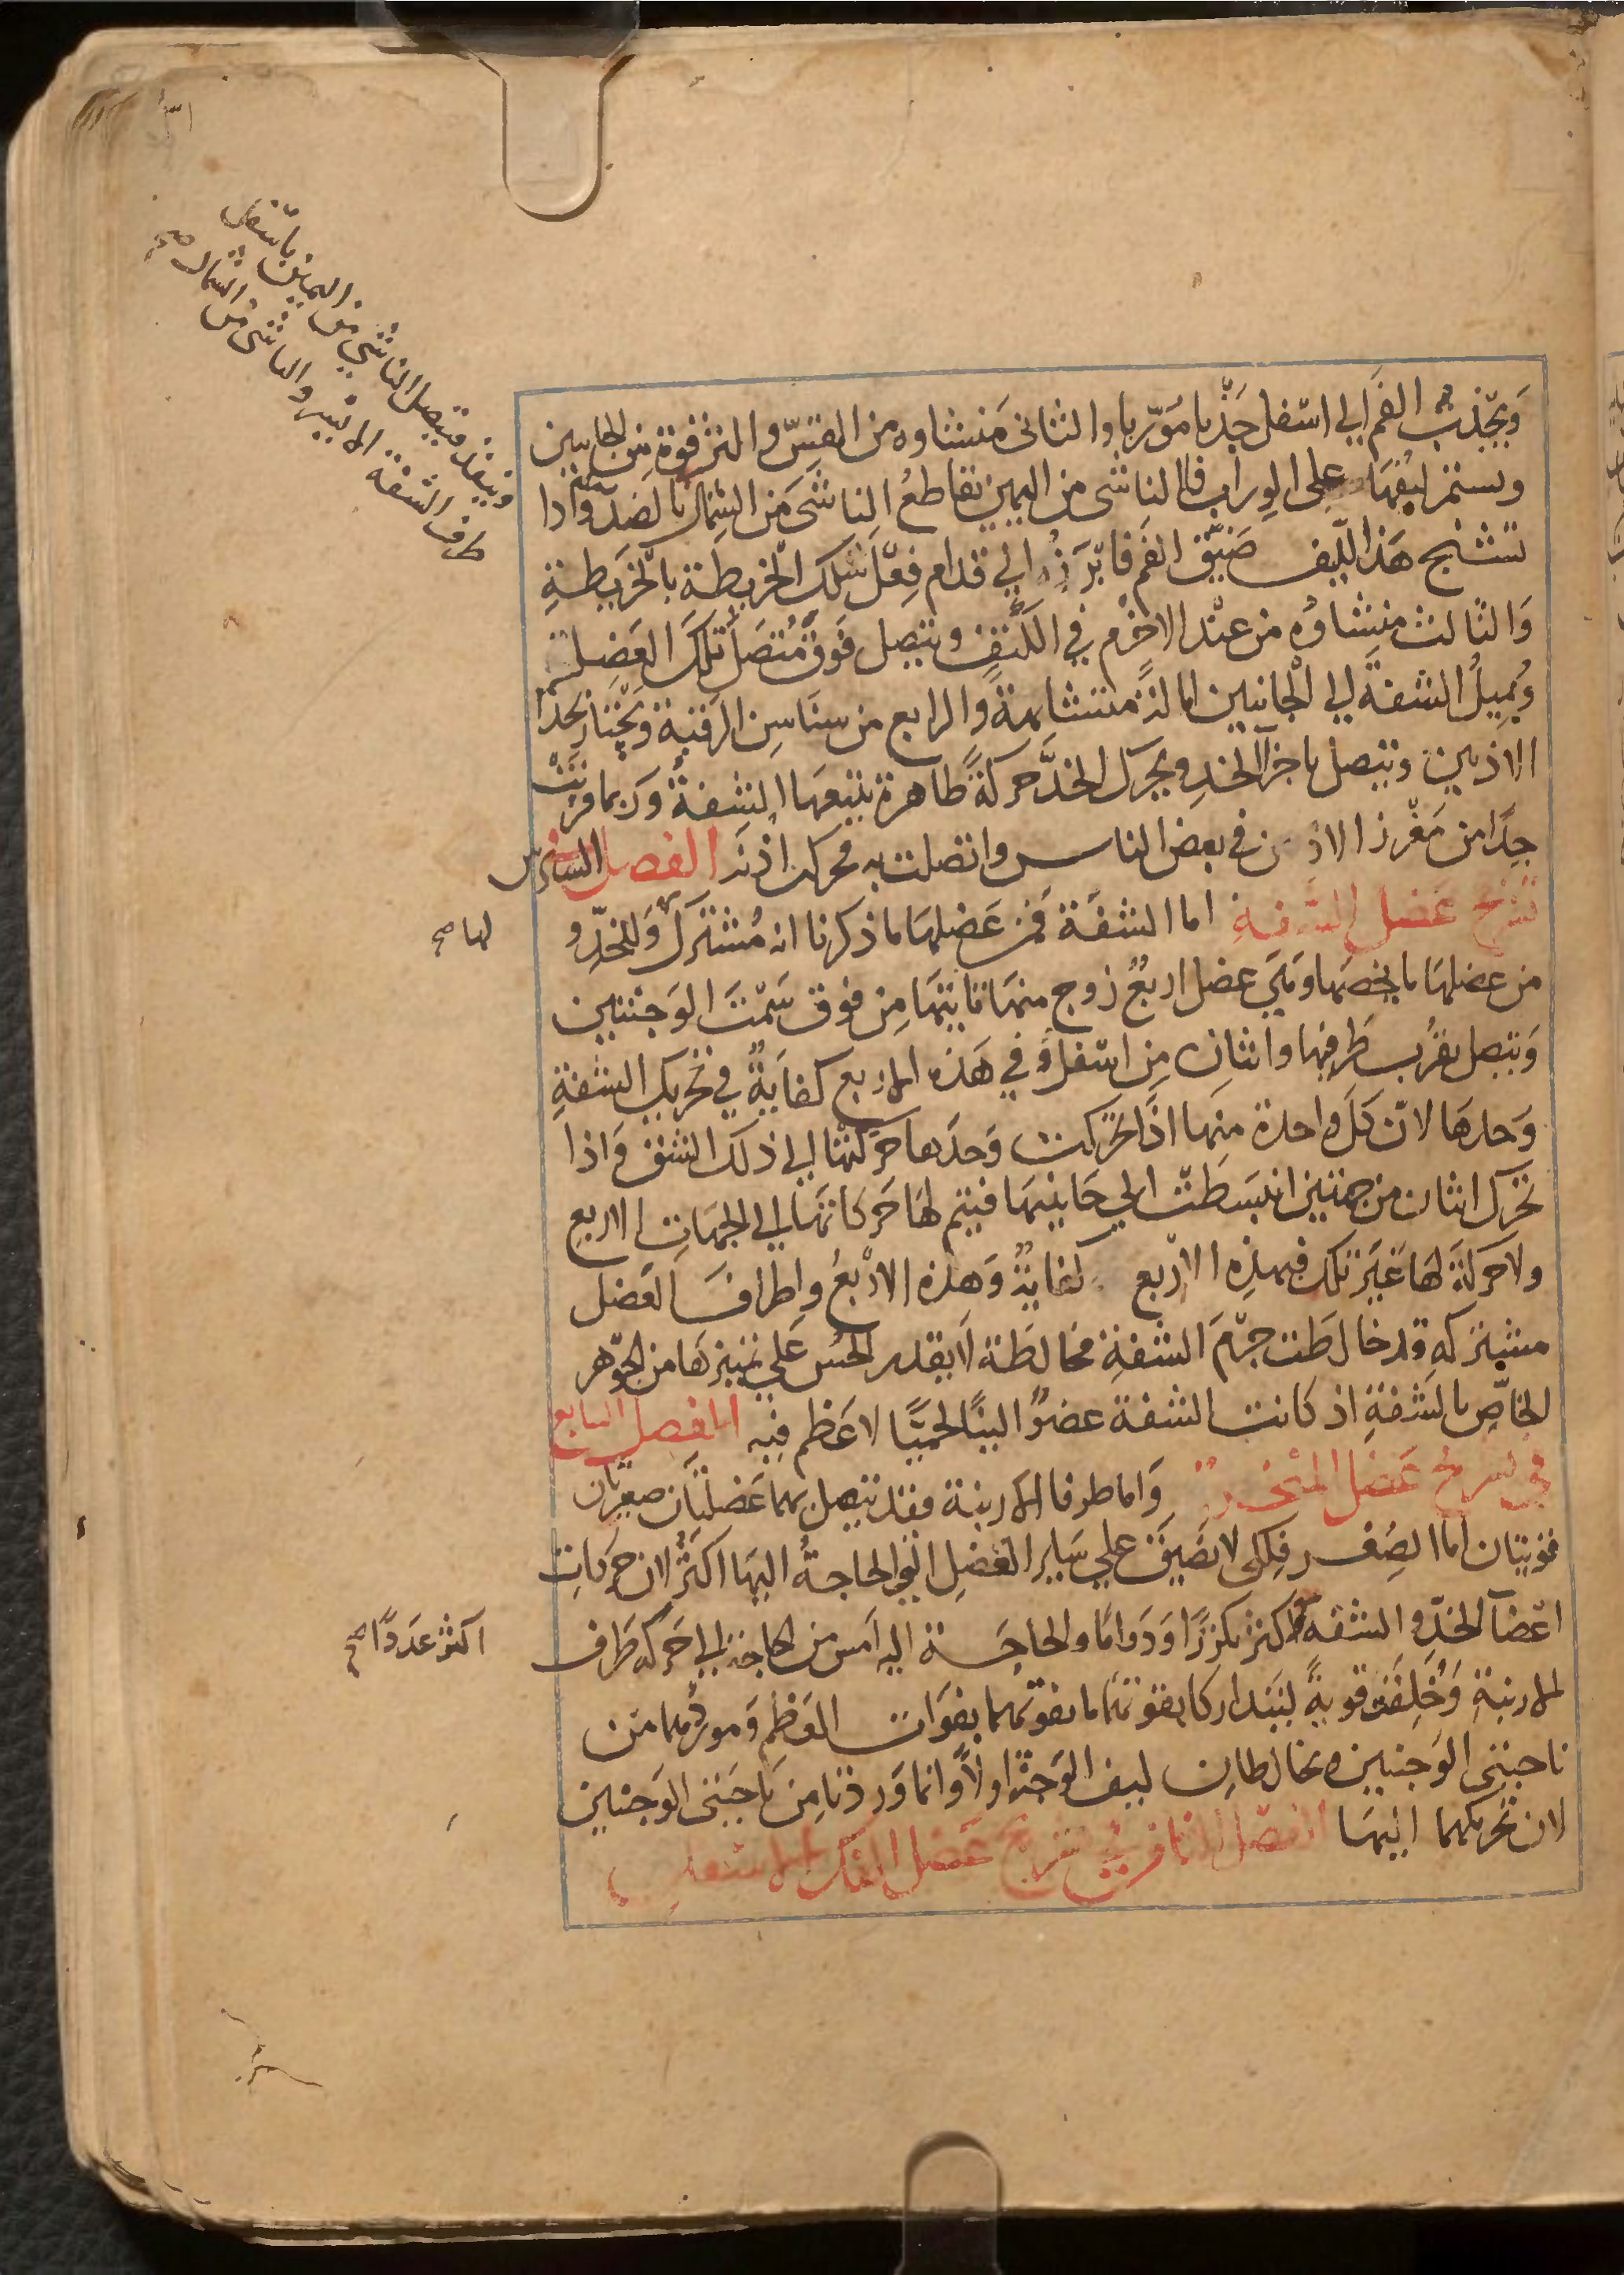 ويجذب الفم الى اسفل جذبا موربا والثانى منشاوه من القس والترقوة من الجانبين
ويستمر ليفها على الوراب فالناشى من اليمين يقاطع الناشى من الشمال بالضد واذا
تشنج هذا الليف ضيق الفم فابرزه الي قدام فعل سلك الخريطة بالخريطة
والثالث منشاوه من عند الاخرم في الكتف ويتصل فوق متصل تلك العضل
ويميل الشفة الي الجانبين امالة متشابهة والرابع من سناسن الرقبة ويجتاز بحذا
الاذنين ويتصل باجزا الخد ويحرك الخد حركة ظاهرة يتبعها الشفة وربما قربت
جدا من مغرز الاذن في بعض الناس واتصلت به فحركت اذنه الفصل السادس
تشريح عضل الشفة اما الشفة فمن عضلها ما ذكرنا انه مشترك وللخد و
من عضلها ما يخصها وهي عضل اربع زوج منها ياتيها من فوق سمت الوجنتين
ويتصل بقرب طرفها واثنان من اسفل وفي هذه الاربع كفاية في تحريك الشفة
وحدها لان كل واحدة منها اذا تحركت وحدها حركتها الي ذلك الشق واذا
تحرك اثنان من جهتين انبسطت الي جانبيها فيتم لها حركاتها الي الجهات الاربع
ولا حركة لها غير تلك فبهذه الاربع كفاية وهذه الاربع واطراف العضل
مشتركه قد خالطت جرم الشفة مخالطة لا يقدر الحس علي تمييزها من الجوهر
الخاص بالشفة اذ كانت الشفة عضوا لينا لحميا لا عظم فيه الفصل السابع
في تشريح عضل المنخر واما طرفا الارنبة فقد يتصل بهما عضلتان صغيرتان
قويتان اما الصغر فلكى لا تضيق علي ساير العضل التي الحاجة اليها اكثر لان حركات
اعضا الخد والشفة اكثر تكررا ودواما والحاجة اليه امس من الحاجة الي حركة طرف
الارنبة وخلقت قوية ليتداركا بقوتهما ما يفوتهما بفوات العظم وموردهما من
ناحيتى الوجنتين ويخالطان ليف الوجنة اولا وانما وردتا من ناحيتى الوجنتين
لان تحريكهما اليهما الفصل الثامن في تشريح عضل الفك الاسفل
وينفذ فيتصل الناشي من اليمين باسفل
طرف الشفة الايسر والناشى من الشمال صح
لها صح
اكثر عددا صح